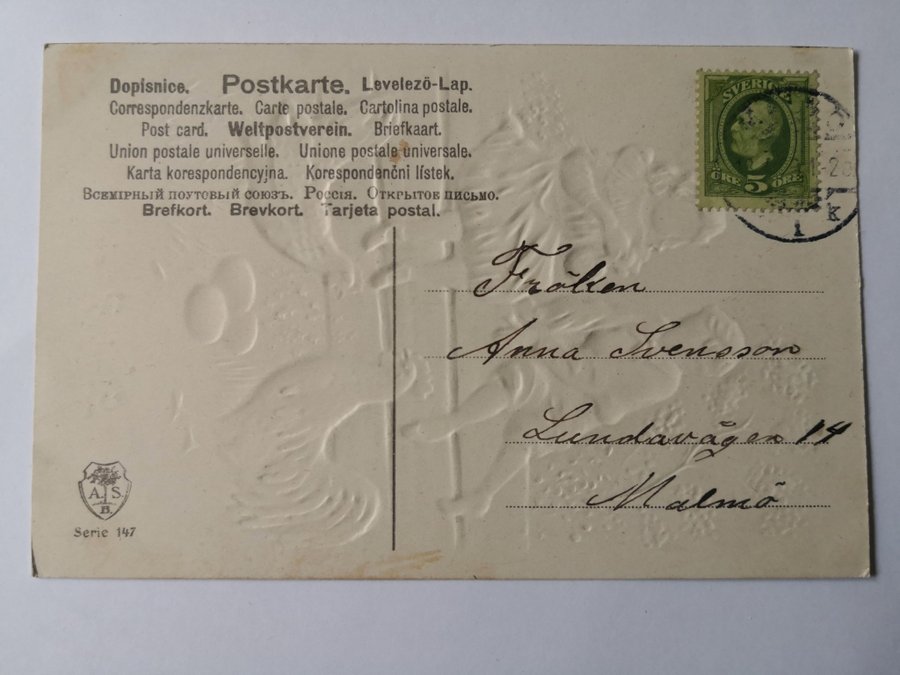 Dopisnice. Postkarte. Levelezö-Lap.
Correspondenzkarte. Carte postale. Cartolina postale.
Post card. Weltpostverein. Briefkaart.
Union postale universelle. Unione postale universale.
Karta korespondencyjna. Korespondenčni lístek.
Всемірный поутовый союзъ. Россія. Открытое письмо.
Brefkort. Brevkort. Tarjeta postal.
SVERIGE
ÖRE 5 ÖRE
1 K
Fröken
Anna Svensson
Lundavägen 14
Malmö
A. S.
B.
Serie 147